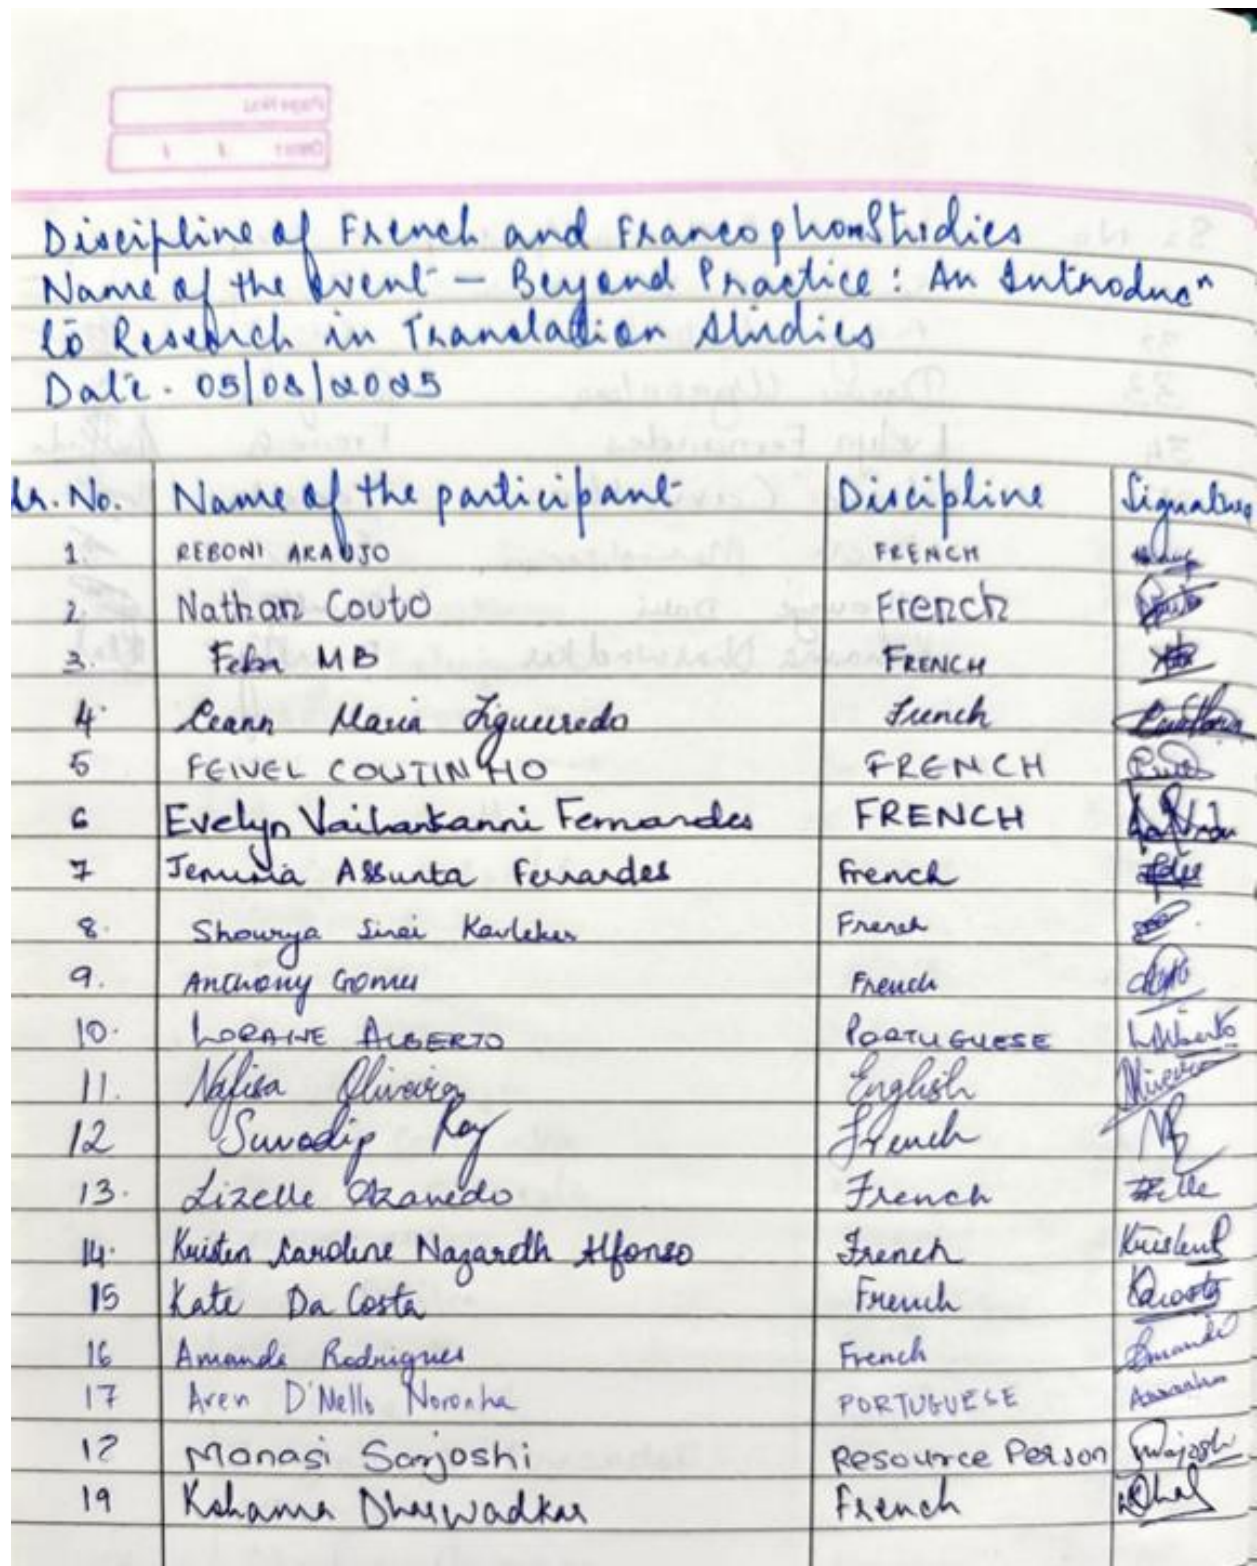 Discipline of French and Francophone Studies
Name of the event - Beyond Practice : An Introducⁿ
to Research in Translation Studies
Date - 05/08/2025
Sr. No. Name of the participant Discipline Signature
1. REBONI ARAUJO FRENCH
2. Nathan Couto French
3. Feba MB FRENCH
4. Leann Maria Figueiredo French
5 FEIVEL COUTINHO FRENCH
6 Evelyn Vailankanni Fernandes FRENCH
7 Assunta Fernandes French
8. Shourya Sinai Kavlekar French
9. Anthony Gomes French
10. LORAINE ALBERTO PORTUGUESE LAlberto
11. Nafisa Oliveira English
12 Suvadip Roy French
13. Lizelle Azavedo French
14. Kristen Caroline Nazareth Alfonso French
15 Kate Da Costa French
16 Amanda Rodrigues French
17 Aren D'Mello Noronha PORTUGUESE
18 Manasi Sarjoshi Resource Person
19 Kshama Dharwadkar French